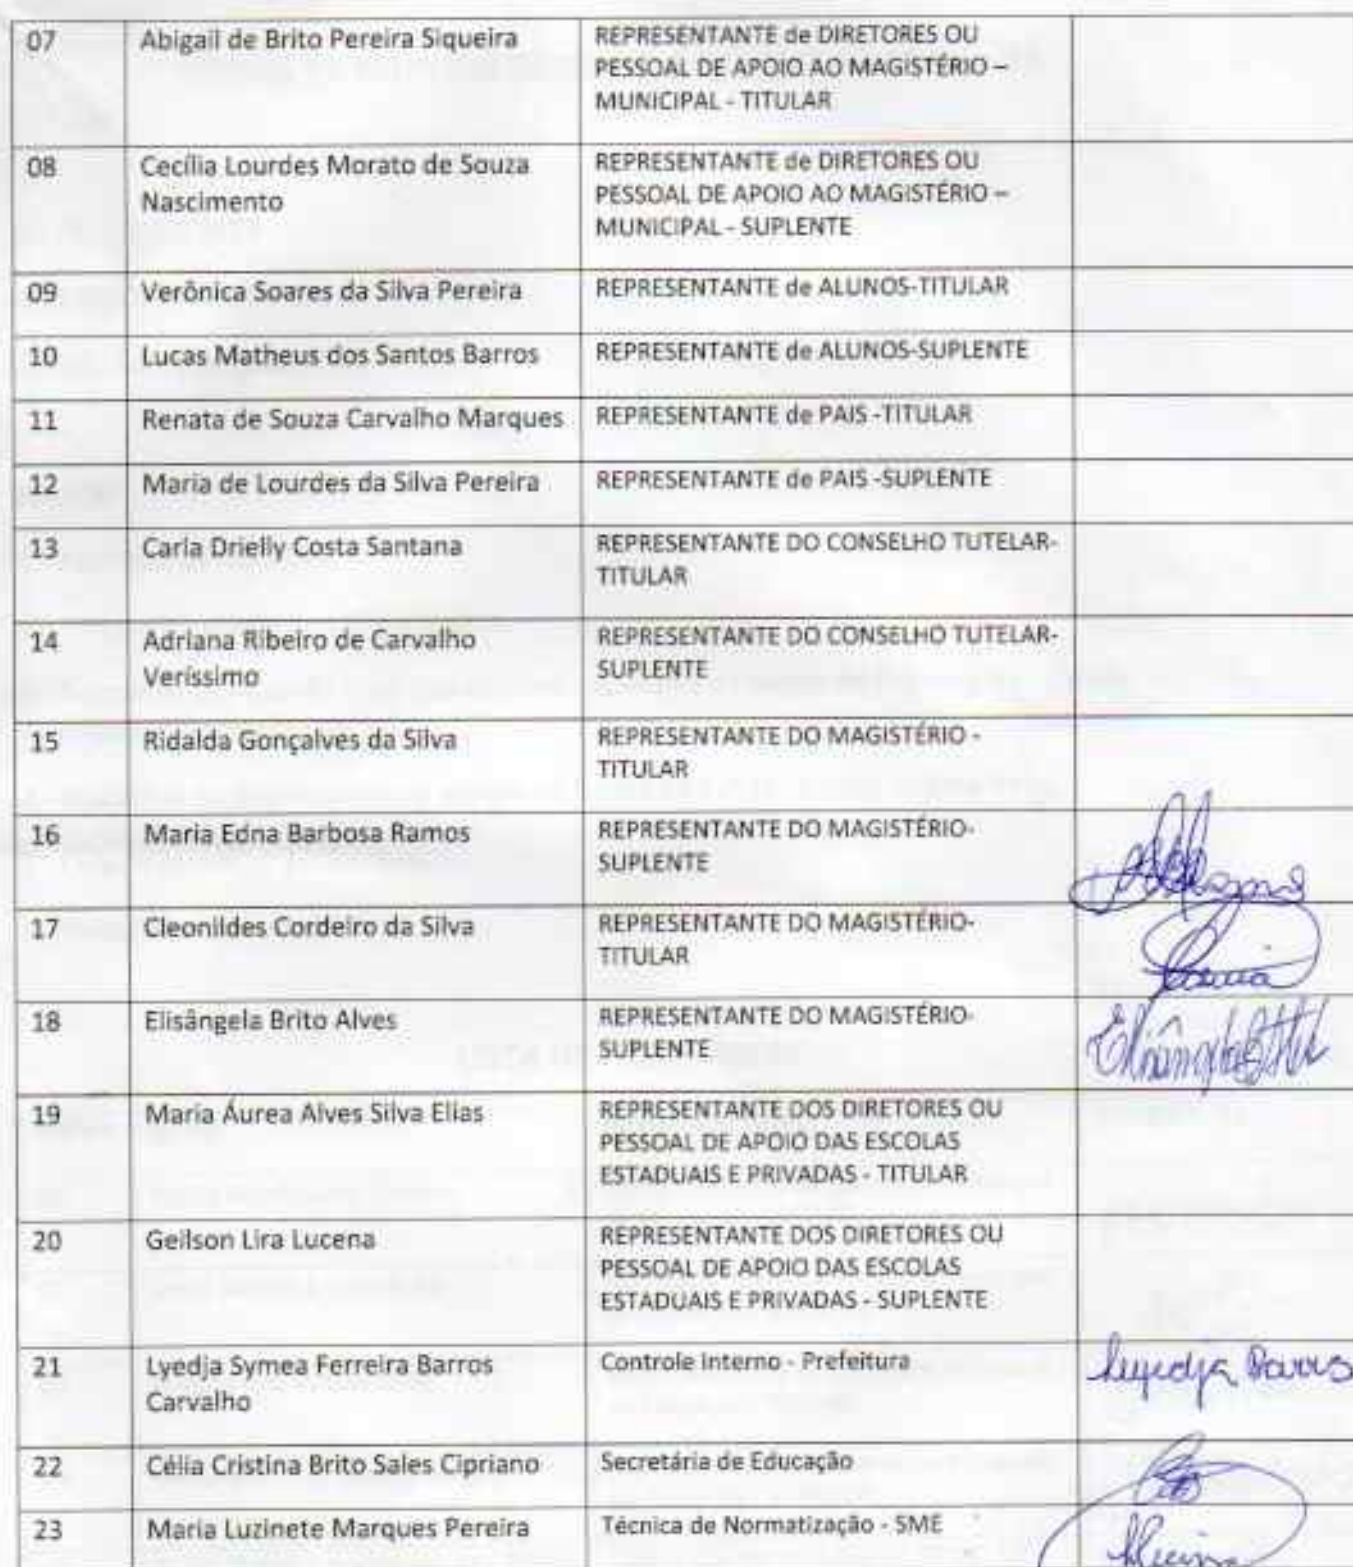 07 Abigail de Brito Pereira Siqueira REPRESENTANTE de DIRETORES OU
PESSOAL DE APOIO AO MAGISTÉRIO –
MUNICIPAL - TITULAR
08 Cecília Lourdes Morato de Souza REPRESENTANTE de DIRETORES OU
Nascimento PESSOAL DE APOIO AO MAGISTÉRIO –
MUNICIPAL - SUPLENTE
09 Verônica Soares da Silva Pereira REPRESENTANTE de ALUNOS-TITULAR
10 Lucas Matheus dos Santos Barros REPRESENTANTE de ALUNOS-SUPLENTE
11 Renata de Souza Carvalho Marques REPRESENTANTE de PAIS -TITULAR
12 Maria de Lourdes da Silva Pereira REPRESENTANTE de PAIS -SUPLENTE
13 Carla Drielly Costa Santana REPRESENTANTE DO CONSELHO TUTELAR-
TITULAR
14 Adriana Ribeiro de Carvalho REPRESENTANTE DO CONSELHO TUTELAR-
Veríssimo SUPLENTE
15 Ridalda Gonçalves da Silva REPRESENTANTE DO MAGISTÉRIO -
TITULAR
16 Maria Edna Barbosa Ramos REPRESENTANTE DO MAGISTÉRIO-
SUPLENTE
17 Cleonildes Cordeiro da Silva REPRESENTANTE DO MAGISTÉRIO-
TITULAR
18 Elisângela Brito Alves REPRESENTANTE DO MAGISTÉRIO-
SUPLENTE
19 Maria Áurea Alves Silva Elias REPRESENTANTE DOS DIRETORES OU
PESSOAL DE APOIO DAS ESCOLAS
ESTADUAIS E PRIVADAS - TITULAR
20 Geilson Lira Lucena REPRESENTANTE DOS DIRETORES OU
PESSOAL DE APOIO DAS ESCOLAS
ESTADUAIS E PRIVADAS - SUPLENTE
21 Lyedja Symea Ferreira Barros Controle Interno - Prefeitura Lyedja Barros
Carvalho
22 Célia Cristina Brito Sales Cipriano Secretária de Educação
23 Maria Luzinete Marques Pereira Técnica de Normatização - SME